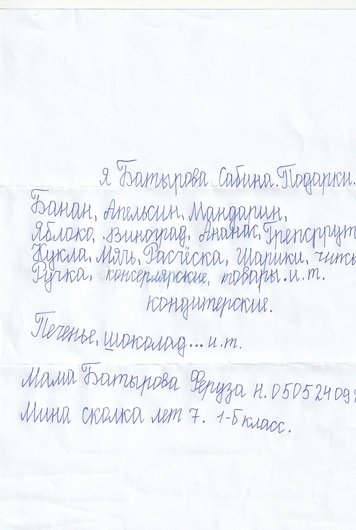 я Батырова Сабина. Подарки.
Банан, Апельсин, Мандарин,
Яблоко, Виноград, Ананас, Грепсррут
Кукла, Мяль, Расчёска, Шарики, читы
Ручка, консерлярские, товары. и. т.
кондитерские.
Печенье, шоколад... и. т.
Мама Батырова Феруза н. 05052409
Мина сколка лет 7. 1-б класс.